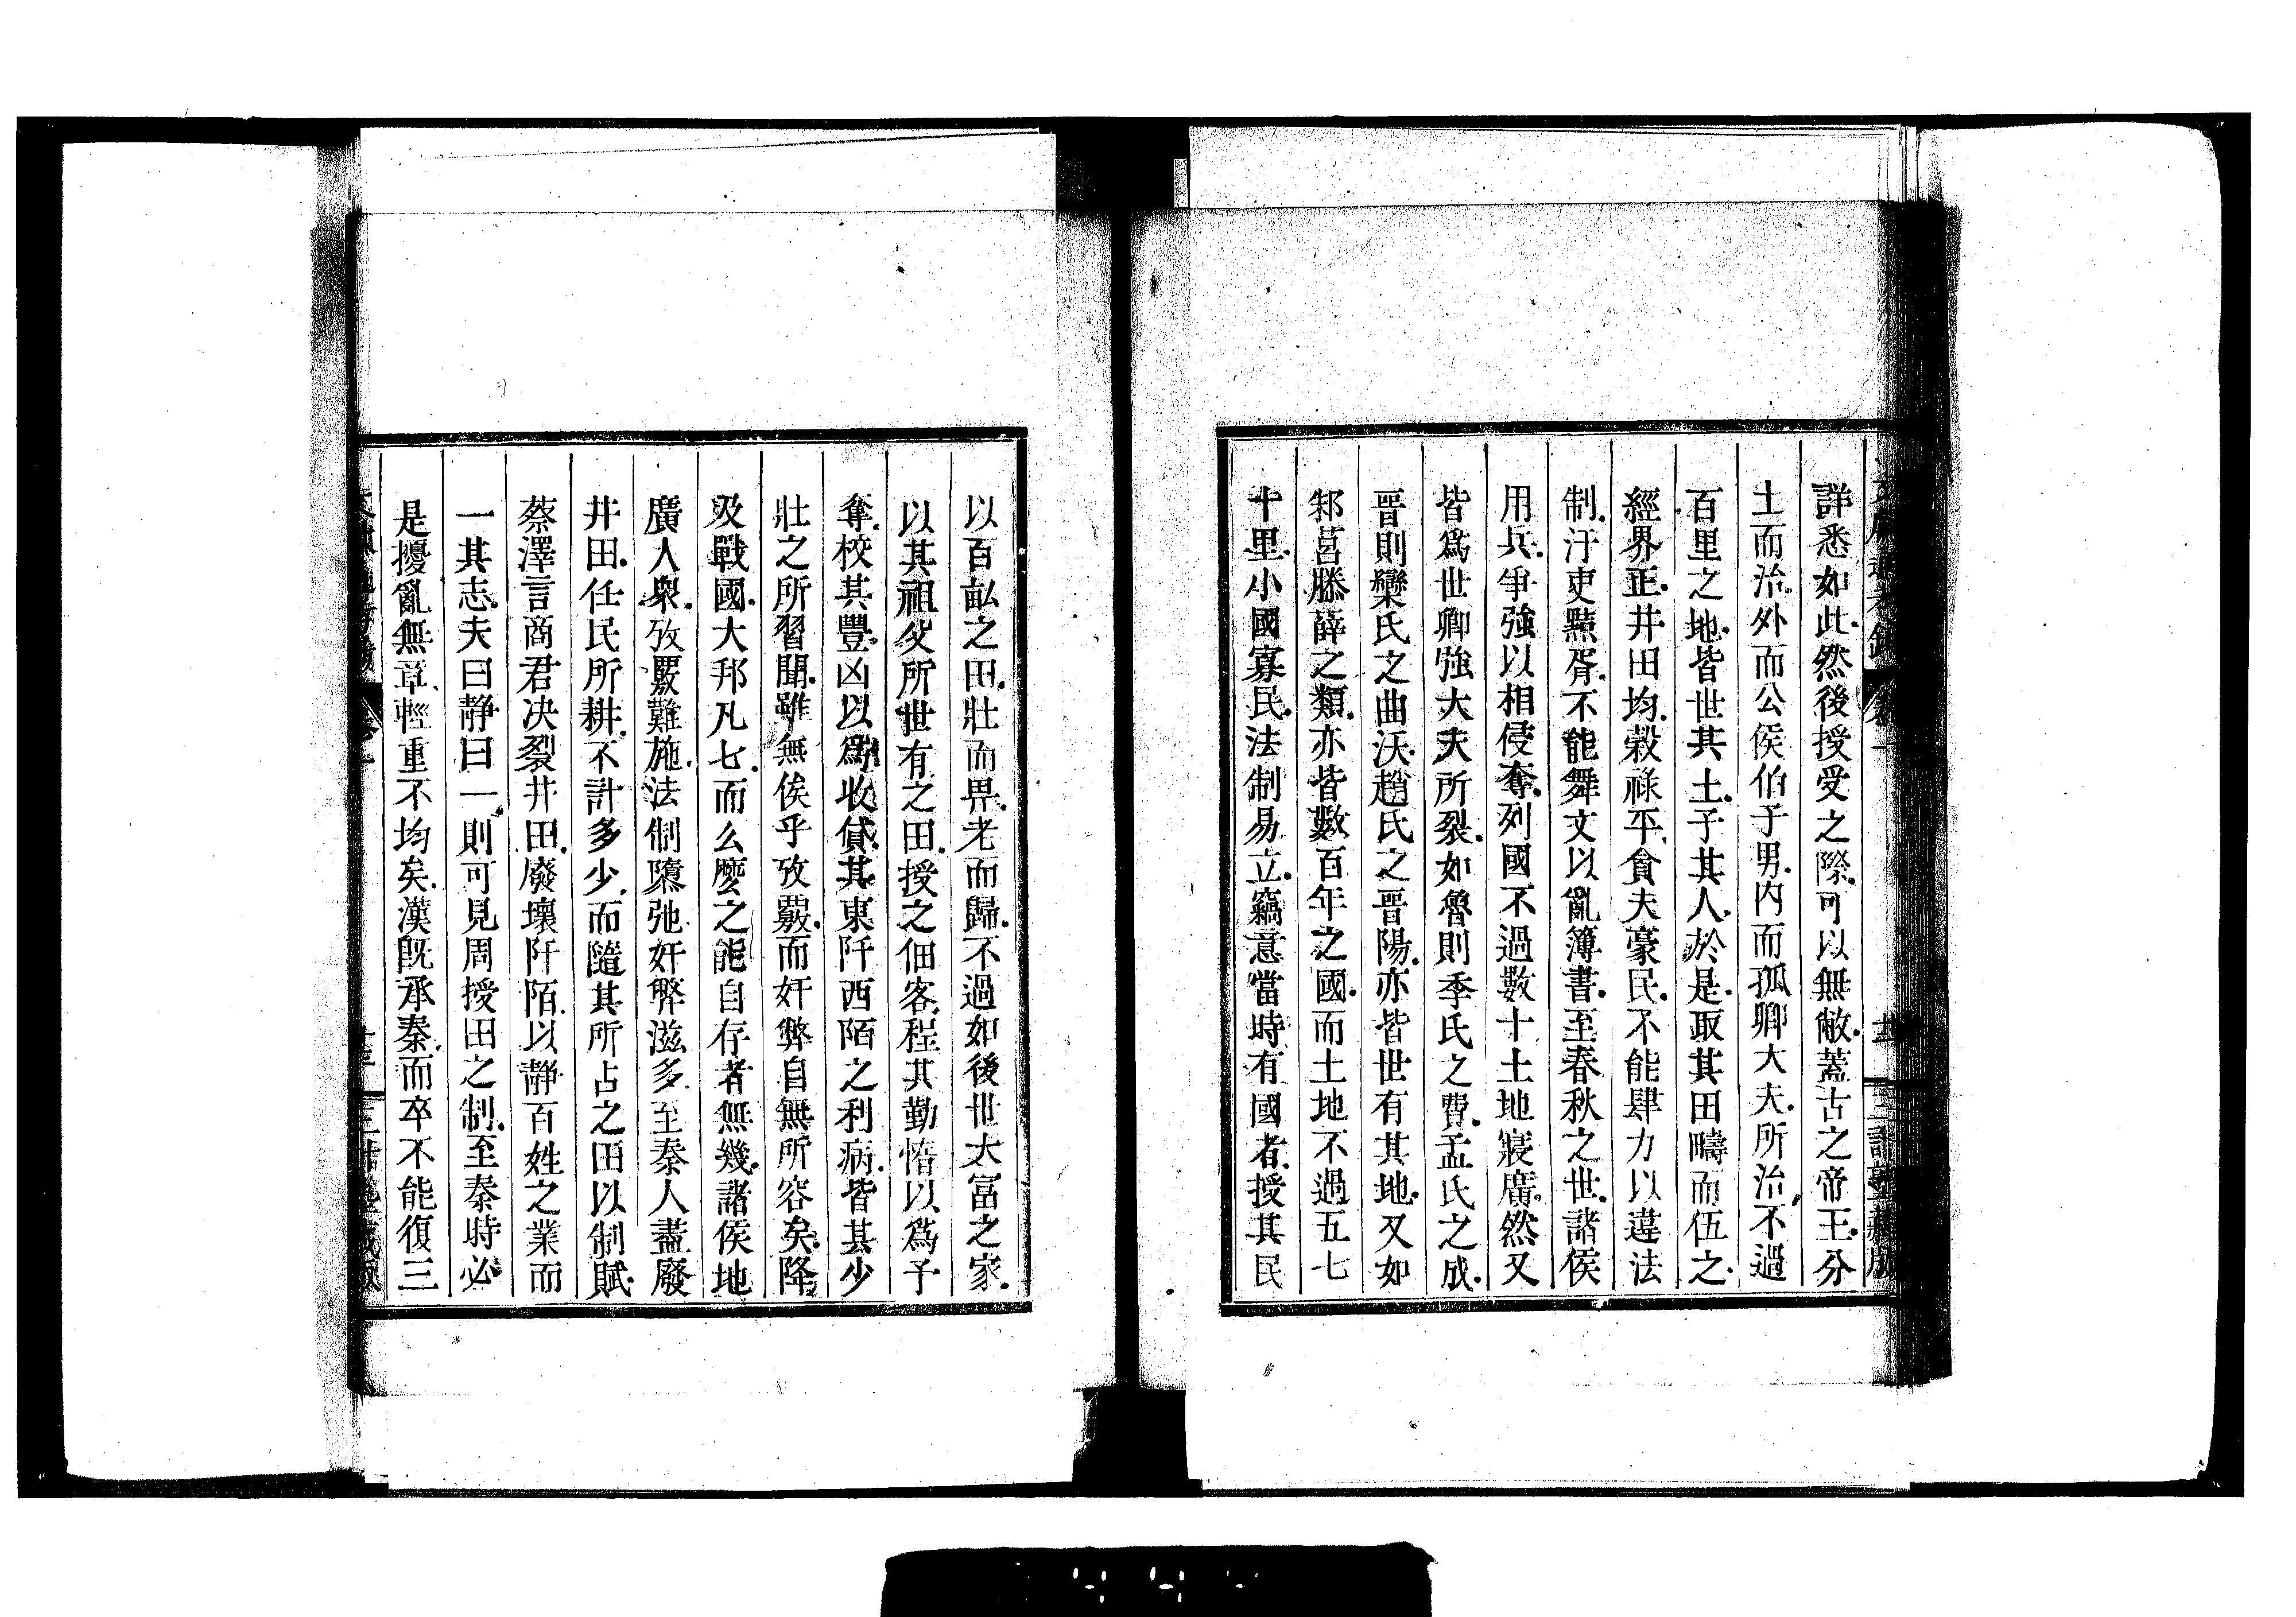 詳悉如此然後授受之際可以無敝蓋古之帝王分
土而治外而公侯伯子男内而孤卿大夫所治不過
百里之地皆世其土子其人於是取其田疇而伍之
經界正井田均穀祿平貪夫豪民不能肆力以違法
制汙吏黠胥不能舞文以亂簿書至春秋之世諸侯
用兵爭強以相侵奪列國不過數十土地寖廣然又
皆爲世卿強大夫所裂如魯則季氏之費孟氏之成
晉則欒氏之曲沃趙氏之晉陽亦皆世有其地又如
邾莒滕薛之類亦皆數百年之國而土地不過五七
十里小國寡民法制易立竊意當時有國者授其民
以百畝之田壯而畀老而歸不過如後世大富之家
以其祖父所世有之田授之佃客程其勤惰以爲予
奪校其豐凶以爲收貸其東阡西陌之利病皆其少
壯之所習聞雖無俟乎攷覈而奸弊自無所容矣降
及戰國大邦凡七而么麼之能自存者無幾諸侯地
廣人衆攷覈難施法制隳弛奸弊滋多至秦人盡廢
井田任民所耕不計多少而隨其所占之田以制賦
蔡澤言商君决裂井田廢壞阡陌以靜百姓之業而
一其志夫曰靜曰一則可見周授田之制至秦時必
是擾亂無章輕重不均矣漢旣承秦而卒不能復三